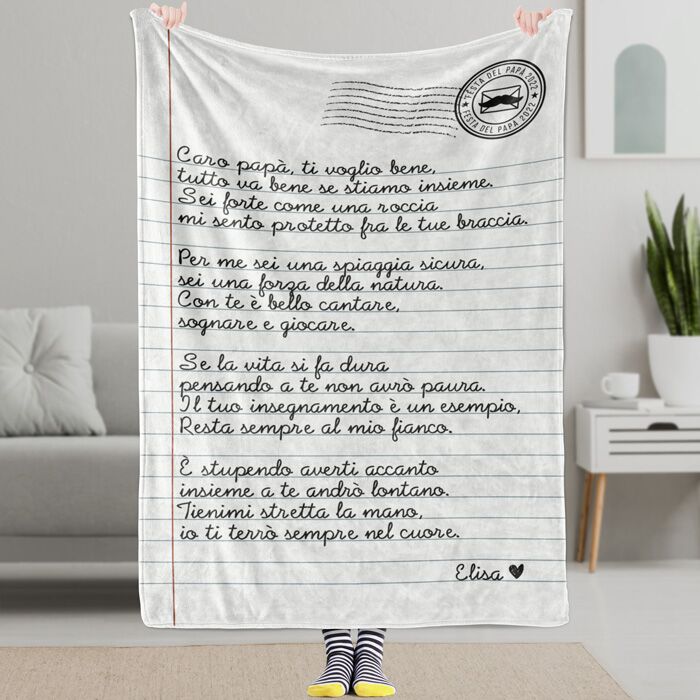 FESTA DEL PAPÀ 2022
FESTA DEL PAPÀ 2022
Caro papà, ti voglio bene,
tutto va bene se stiamo insieme.
Sei forte come una roccia
mi sento protetto fra le tue braccia.
Per me sei una spiaggia sicura,
sei una forza della natura.
Con te è bello cantare,
sognare e giocare.
Se la vita si fa dura
pensando a te non avrò paura.
Il tuo insegnamento è un esempio,
Resta sempre al mio fianco.
È stupendo averti accanto
insieme a te andrò lontano.
Tienimi stretta la mano,
io ti terrò sempre nel cuore.
Elisa